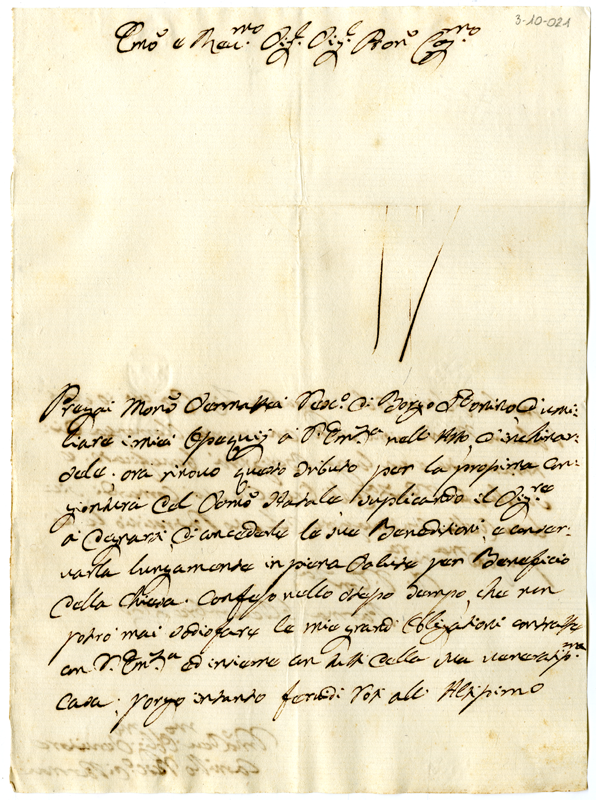 3-10-021
Emo e Rev.mo Sig.r Sig.r Pron Col.mo
Pregai Monsr Vesc.o di Borgo S Donino d'umi:
liare i miei Ossequij a S. Em.za nell' Atto d'inchinar:
sele. ora rinovo questo tributo per la prossima con:
giontura del Natale, suplicando il Sig.re
a degnarsi di la sue Benedittioni, e conser:
varla lungamente in piena Salute per Beneficio
della Chiesa. Confesso nello stesso tempo, che non
potrò mai sodisfare le mie grandi Obligationi contratte
con S. Em.za ed insieme con tutti della sua veneratiss.ma
Casa; porgo intanto Voti all' Altissimo